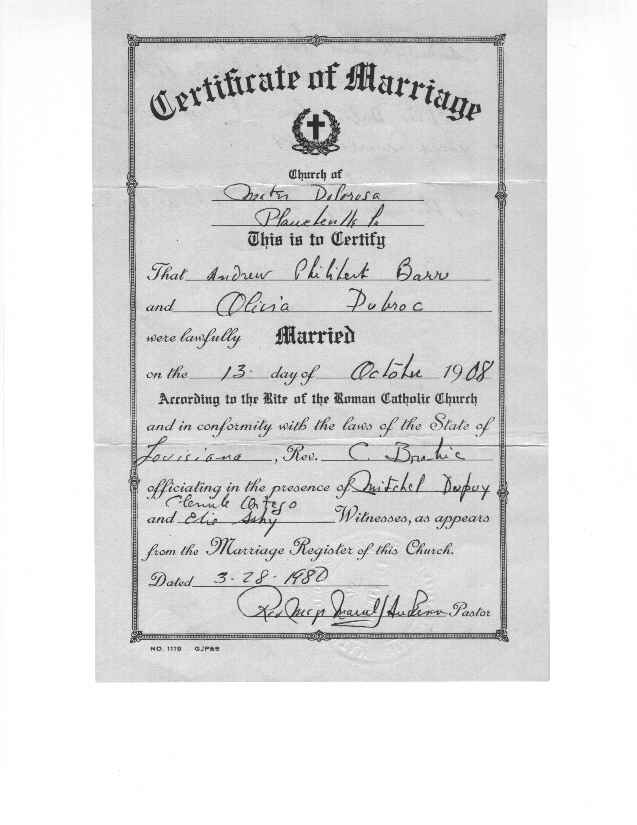 Certificate of Marriage
Church of
Mater Dolorosa
Plaucheville La
This is to Certify
That Andrew Philibert Barr
and Olivia Dubroc
were lawfully Married
on the 13 day of October 1908
According to the Rite of the Roman Catholic Church
and in conformity with the laws of the State of
Louisiana, Rev. C. Brahic
officiating in the presence of Mitchel Dupuy
and Elie Witnesses, as appears
from the Marriage Register of this Church.
Dated 3-28-1980
Rev Msgr Pastor
NO. 1119 GJP&S